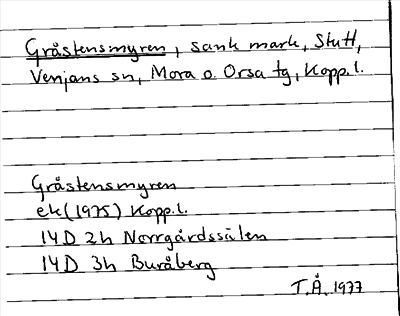 Gråstensmyren, sank mark, Stutt,
Venjans sn, Mora o. Orsa tg, Kopp.l.
Gråstensmyren
ek(1975) Kopp.l.
14D 2h Norrgårdssälen
14D 3h Buråberg
T.Å. 1977